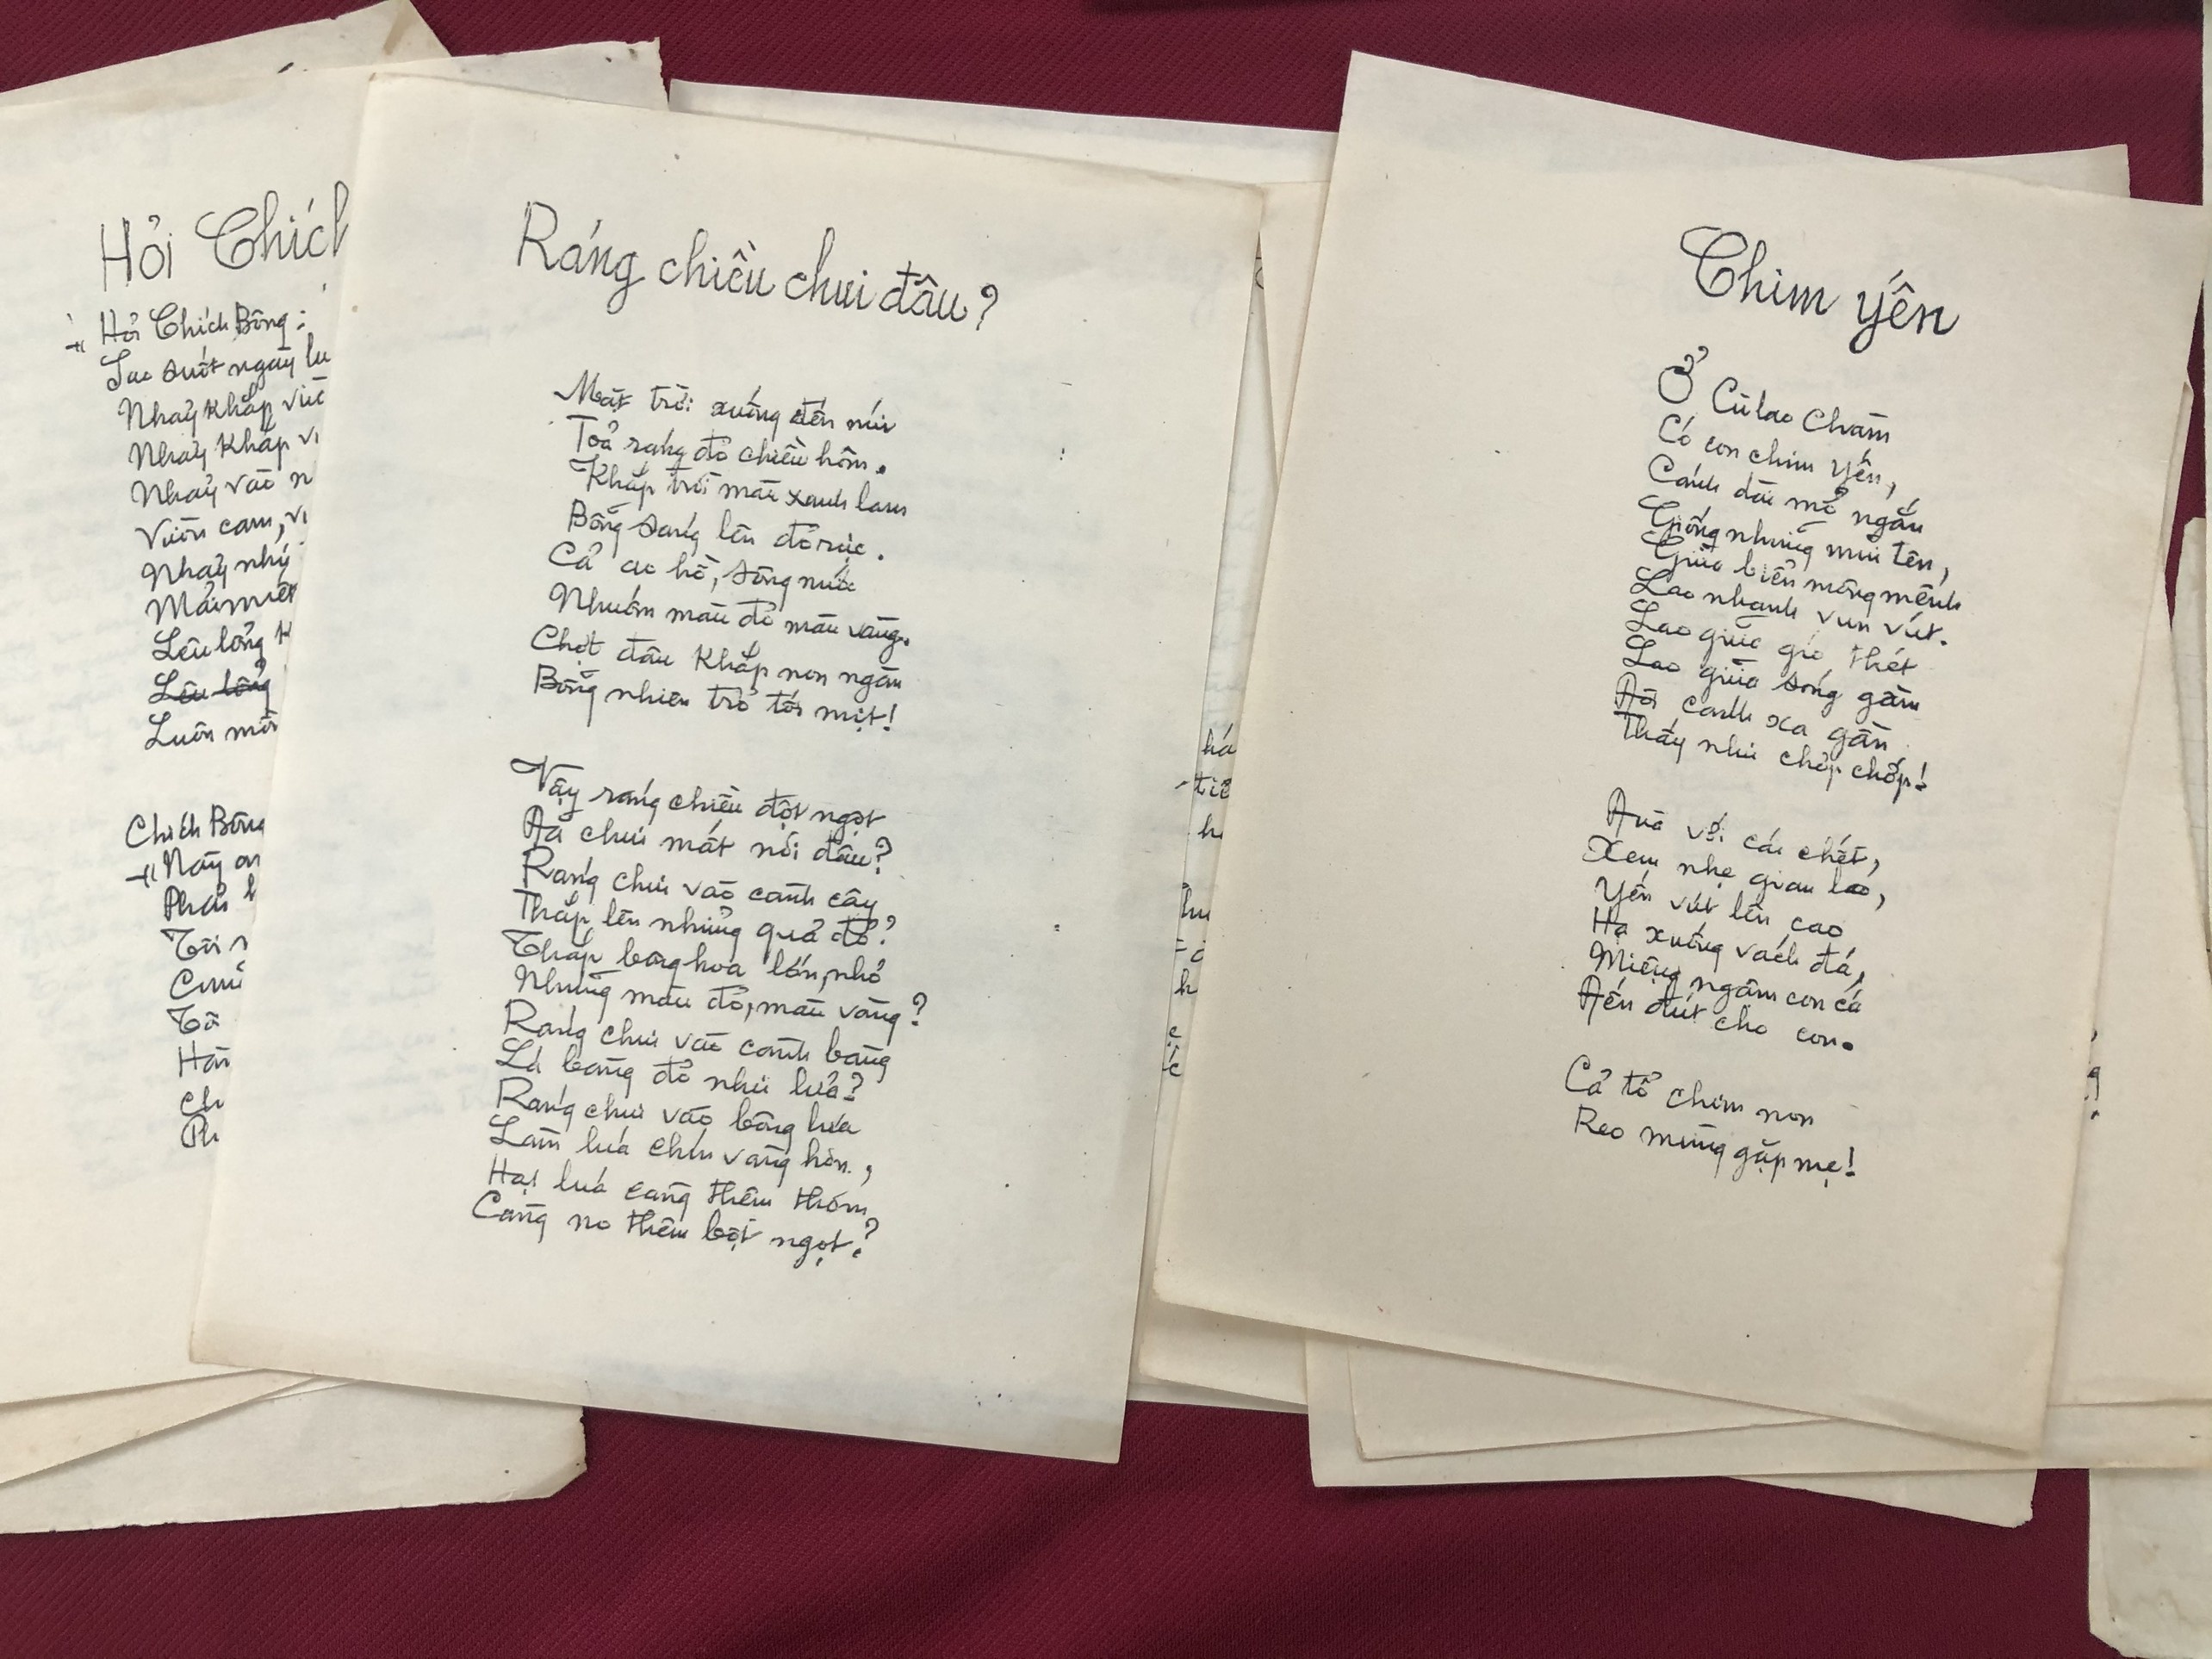 Hỏi Chích
Hỏi Chích Bông:
Sao suốt ngày
Nhảy khắp
Nhảy khắp
Nhảy vào
Vườn cam,
Nhảy
Lêu lổng
Lêu lổng
Luôn
Chích Bông
Này
Phải
Tôi
Ráng chiều chui đâu?
Mặt trời xuống đến núi
Toả ráng đỏ chiều hôm.
Khắp trời màu xanh lam
Bỗng sáng lên đỏ rực.
Cả ao hồ, sông nước
Nhuốm màu đỏ màu vàng.
Chợt đâu khắp non ngàn
Bỗng nhiên trở tối mịt!
Vậy ráng chiều đột ngột
Đã chui mất nơi đâu?
Ráng chui vào cành cây
Thắp lên những quả đỏ?
Thắp bông hoa lớn, nhỏ
Những màu đỏ, màu vàng?
Ráng chui vào cành bàng
Lá bàng đỏ như lửa?
Ráng chui vào bông lúa
Làm lúa chín vàng hơn,
Hạt lúa càng thêm thơm
Càng no thêm bột ngọt?
Chim yến
Ở Cù lao Chàm
Có con chim Yến,
Cánh dài mỏ ngắn
Giống những mũi tên,
Giữa biển mông mênh
Lao nhanh vun vút.
Lao giữa gió thét
Lao giữa sóng gầm
Đôi cánh xa gần
Thấy như chớp chớp!
Đùa với cái chết,
Xem nhẹ gian lao,
Yến vút lên cao
Hạ xuống vách đá,
Miệng ngậm con cá
Đến đút cho con.
Cả tổ chim non
Reo mừng gặp mẹ!